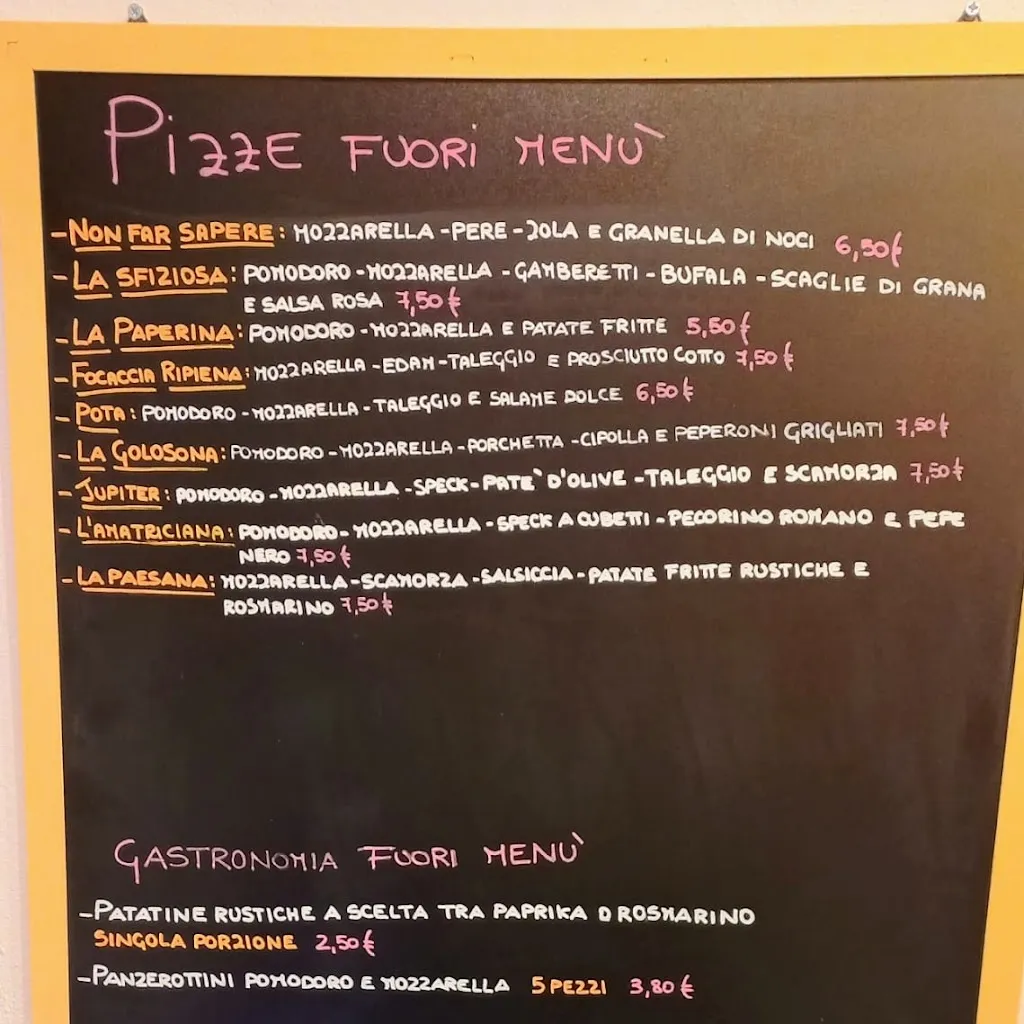 PIZZE FUORI MENÙ
-NON FAR SAPERE: MOZZARELLA-PERE-ZOLA E GRANELLA DI NOCI 6,50€
-LA SFIZIOSA: POMODORO-MOZZARELLA-GAMBERETTI-BUFALA-SCAGLIE DI GRANA
E SALSA ROSA 7,50€
-LA PAPERINA: POMODORO-MOZZARELLA E PATATE FRITTE 5,50€
-FOCACCIA RIPIENA: MOZZARELLA-EDAM-TALEGGIO E PROSCIUTTO COTTO 7,50€
-POTA: POMODORO-MOZZARELLA-TALEGGIO E SALAME DOLCE 6,50€
-LA GOLOSONA: POMODORO-MOZZARELLA-PORCHETTA-CIPOLLA E PEPERONI GRIGLIATI 7,50€
-JUPITER: POMODORO-MOZZARELLA-SPECK-PATE` D'OLIVE-TALEGGIO E SCAMORZA 7,50€
-L'AMATRICIANA: POMODORO-MOZZARELLA-SPECK A CUBETTI-PECORINO ROMANO E PEPE
NERO 7,50€
-LA PAESANA: MOZZARELLA-SCAMORZA-SALSICCIA-PATATE FRITTE RUSTICHE E
ROSMARINO 7,50€
GASTRONOMIA FUORI MENÙ
-PATATINE RUSTICHE A SCELTA TRA PAPRIKA O ROSMARINO
SINGOLA PORZIONE 2,50€
-PANZEROTTINI POMODORO E MOZZARELLA 5 PEZZI 3,80€